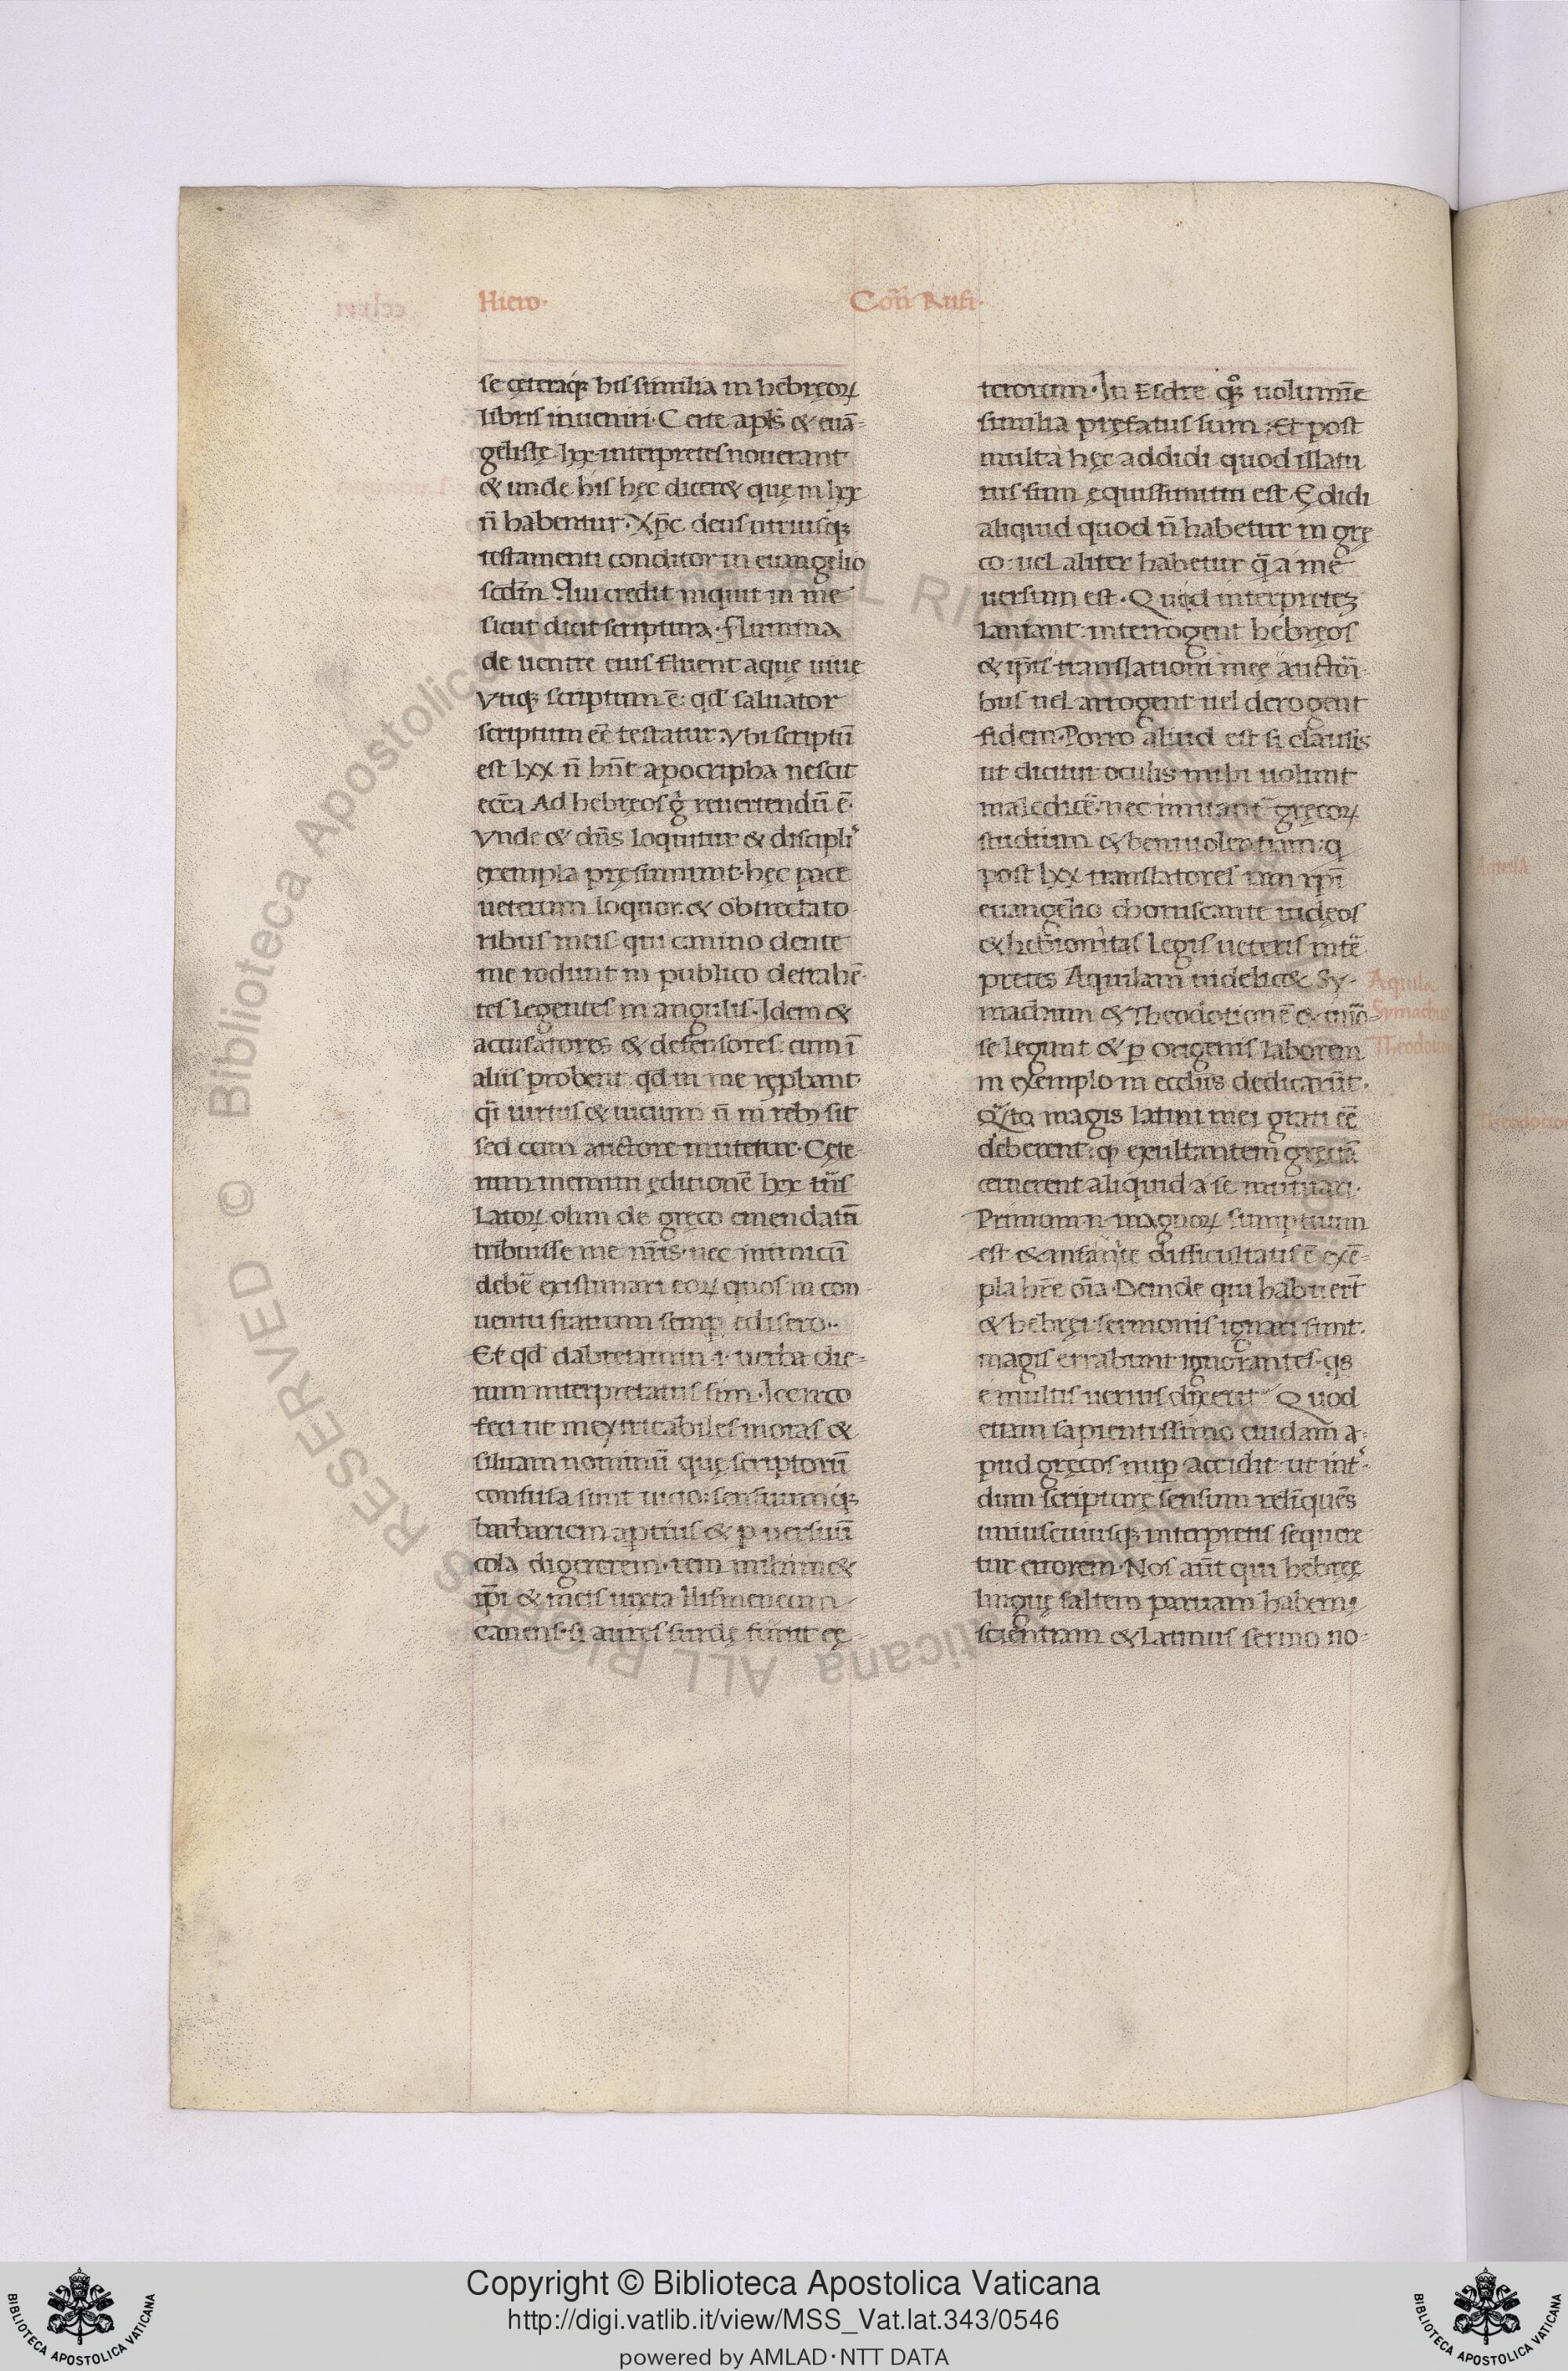 Hiero·
Cont̄ Rufi·
se ceteraq; his similia in hebręoꝝ
libris inueniri· Certe apl̄s & euā-
geliste lxx interpretes nouerant
& unde his hęc dicere& quę in lxx
n̄ habentur· Xp̄c deus utriusq;
testamenti conditor in euangelio
scdm̄ Qui credit inquit in me
sicut dicit scriptura· flumina
de uentre eius fluent aque uiuę
Vtiq; scriptum ē: qd̄ saluator
scriptum eē testatur: Vbi scriptū
est lxx n̄ hn̄t apocripha nescit
ecc̄a Ad hebręos g̊ reuertendū ē·
Vnde & dn̄s loquitur & discipli
exempla pręsumunt· hęc pace
ueterum loquor & obtrectato
ribus meis qui canino dente
me rodunt in publico detrahē-
tes legentes in angulis· Idem &
accusatores & defensores cum ī
aliis probent qd̄ in me rep̄bant·
q̄i uirtus & uicium n̄ in reb; sit
sed cum auctore mutetur· Cęte
rum memini editionē lxx trās
latoꝝ olim de gręco emendatā
tribuisse me nr̄is· nec inimicū
debē existimari eoꝝ quos in con-
uentu fratrum semp̄ edisero·
Et qd̄ dabreiamin ·i· uerba die-
rum interpretatus sum· Icerrco
feci ut inextricabiles moras &
siluam nominū quę scriptorū
confusa sunt uicio: sensuumq;
barbariem aptius & p uersuū
cola digererem· mihi me&
ip̄i & meis iuxta Hismenium
canens· si aures surdę sunt cę-
terorum· In Esdre q̊q; uolumīe
similia pręfatus sum: Et post
multa hęc addidi quod illatu
rus sum ęquissimum est· Edidi
aliquid quod n̄ habetur in grę
co: uel aliter habetur q̄ a me
uersum est· Quid interpretez
laniant: interrogent hebręos
& ip̄is translationi meę auctori
bus uel arrogent uel derogent
fidem· Porro aliud est si clausis
ut dicitur oculis mihi uolunt
maledicē· nec imitant̄ gręcoꝝ
studium & beniuolentiam: q
post lxx translatores iam xp̄i
euangelio choruscante iudęos
& hebionitas legis ueteris intē
pretes Aquilam uidelice& Sy-
machum & Theodotionē & curio
se legunt & p origenis laborem
in exemplo in eccl̄iis dedicarūt·
Quāto magis latini mei grati eē
deberent: q exultantem gręciā
cernerent aliquid a se mutuari·
Primum n̄ magnoꝝ sumptuum
est & infinite difficultatis ē exē-
pla hr̄e oīa· Deinde qui habuert̄
& hebręi sermonis ignari sunt·
magis errabunt ignorantes· q̄s
e multis uerius dixerit Quod
etiam sapientissimo cuidam a-
pud gręcos nup̄ accidit: ut int̄-
dum scripturę sensum relīquēs
uniuscuiusq; interpretis sequere
tur errorem· Nos aūt qui hebręę
linguę saltem paruam habem;
scientiam & latinus sermo no-
Aquila
Symachus
Theodotion
Copyright © Biblioteca Apostolica Vaticana
http://digi.vatlib.it/view/MSS_Vat.lat.343/0546
powered by AMLAD·NTT DATA